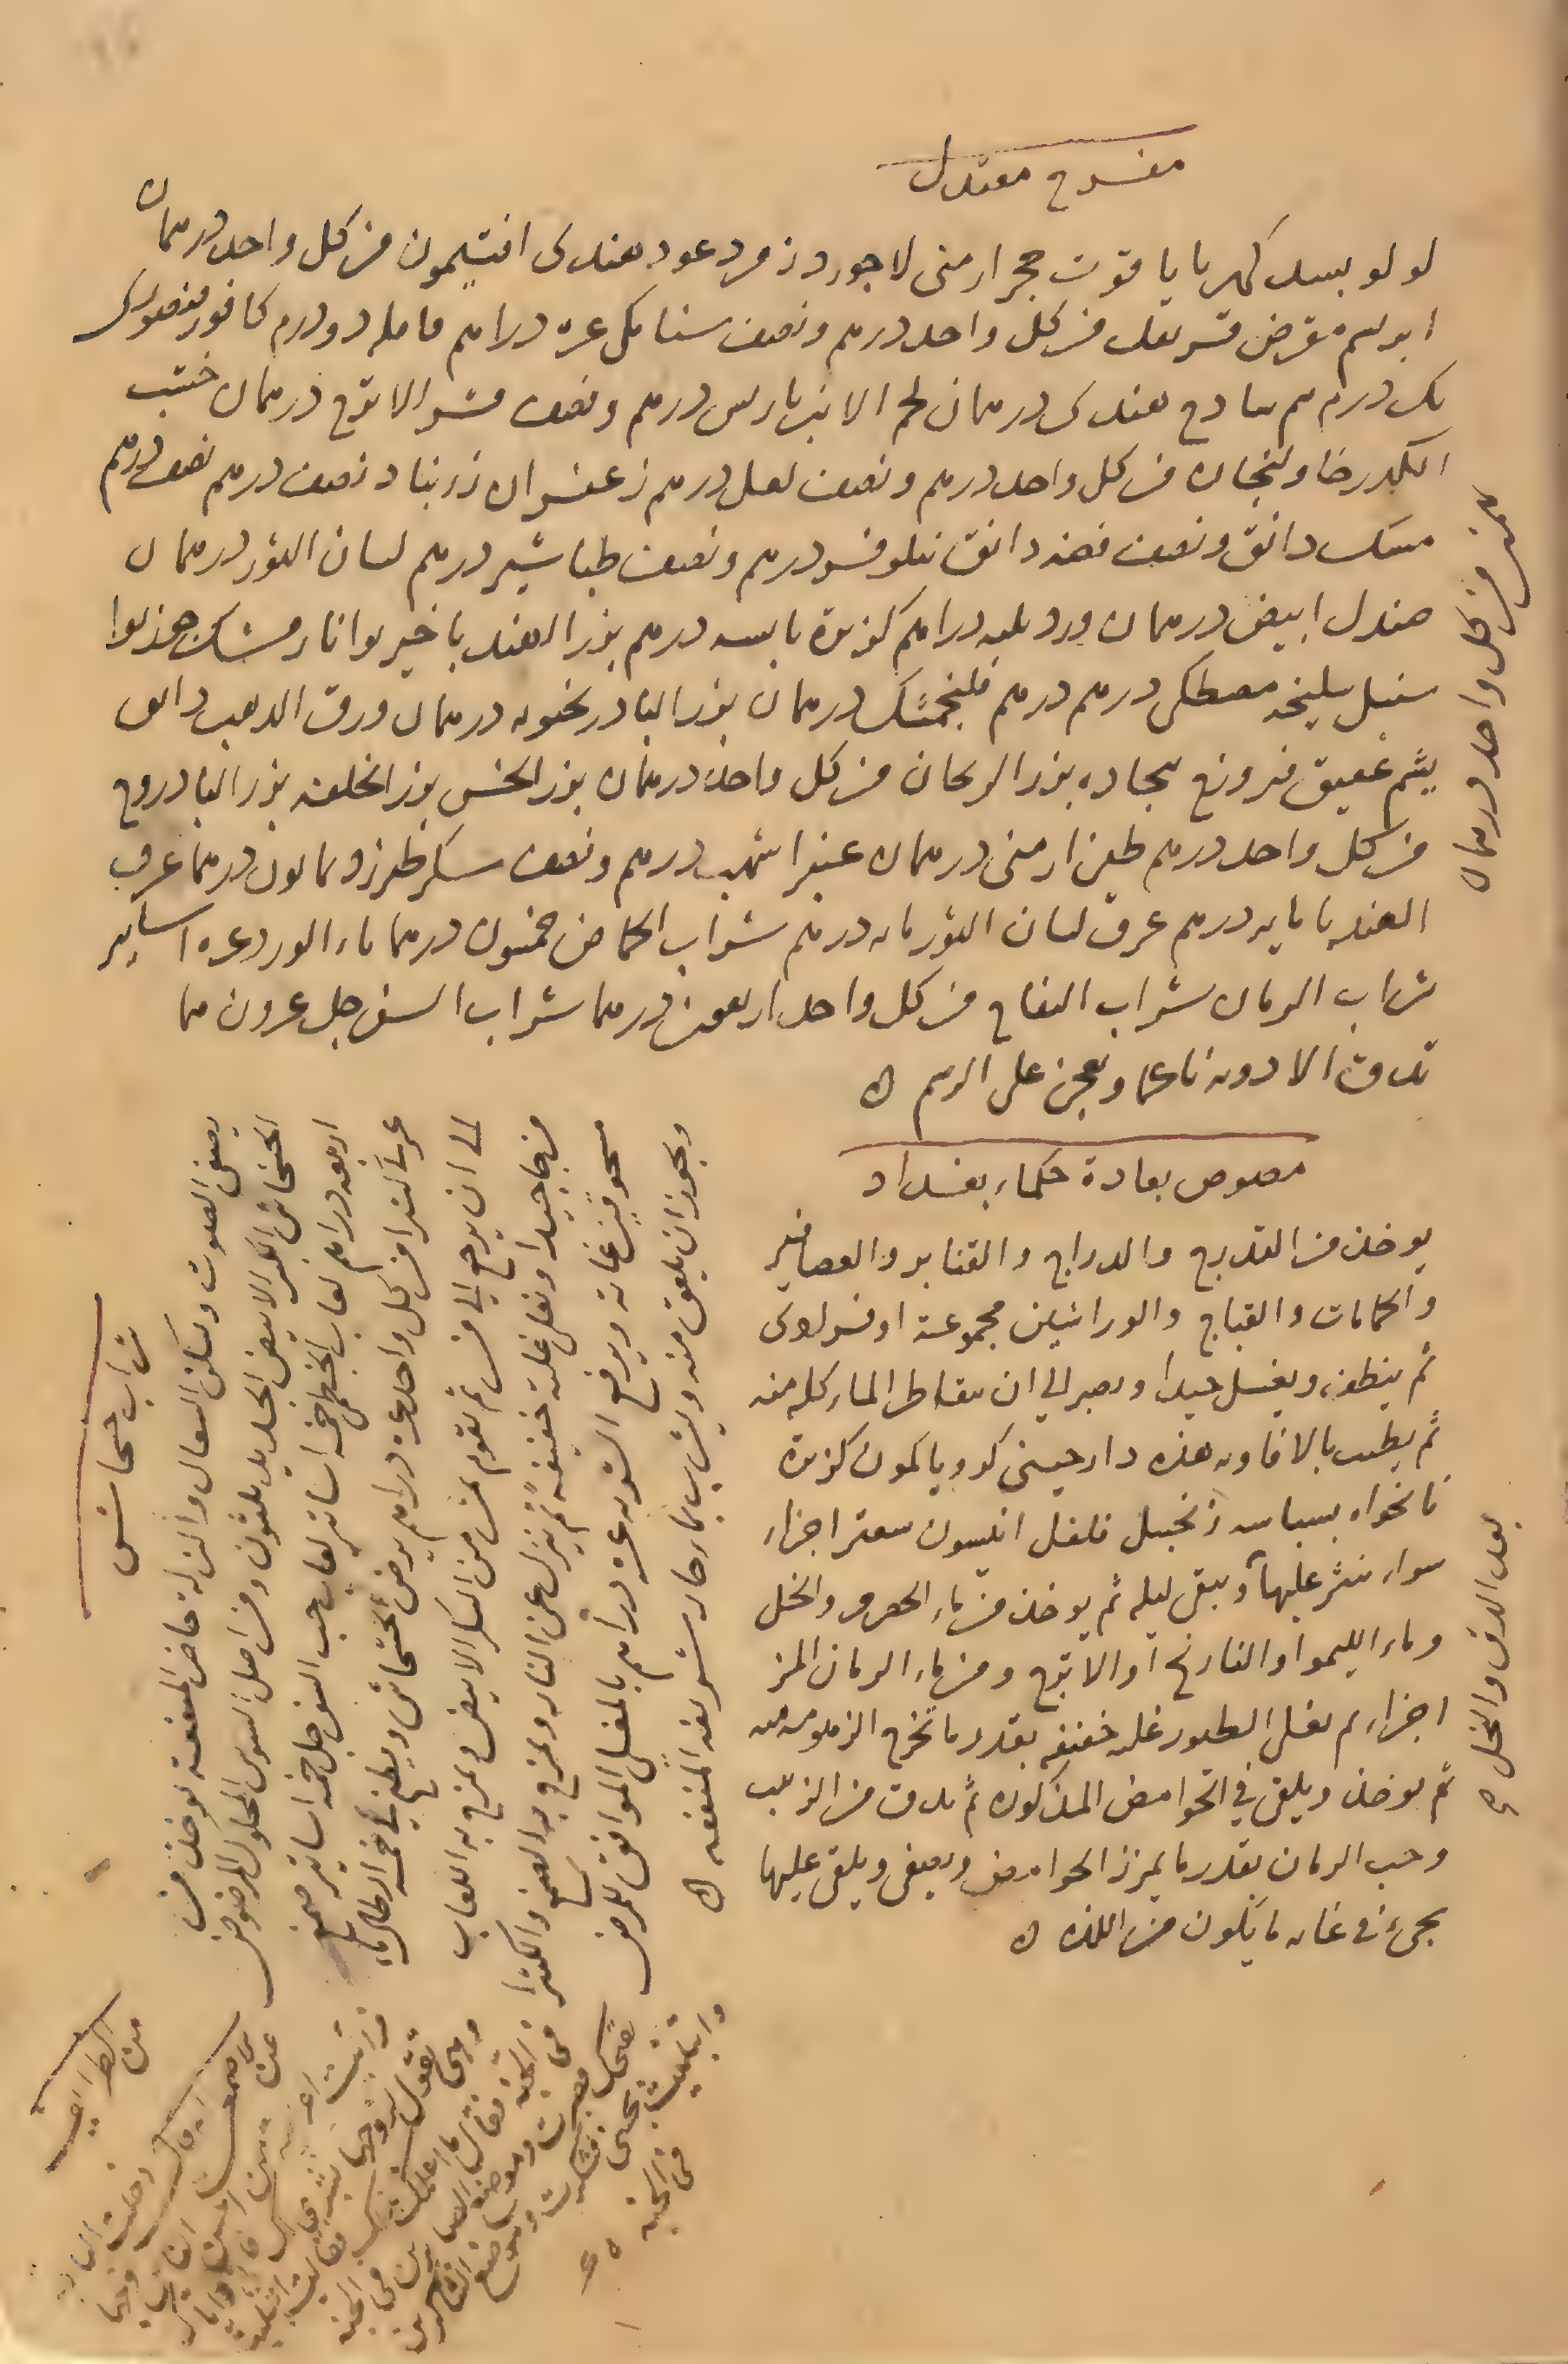 مفرح معتدل
لولو بسد كهربا ياقوت حجر ارمنى لاجورد زمرد عود هندى افتيمون من كل واحد درهمان
ابريسم مقرض قرنفل من كل واحد درهم ونصف سنا مكى عشره دراهم هال دو درم كافور منصورى
يك درم سادج هندى درهمان لحم الانبرباريس درهم ونصف قشر الاترج درهمان خشب
الكدر خاولنجان من كل واحد درهم ونصف لعل درهم زعفران زرنباد نصف درهم نصف درهم
مسك دانق ونصف فضه دانق نيلوفر درهم ونصف طباشير درهم لسان الثور درهمان
صندل ابيض درهمان ورد ثلثه دراهم كزبرة يابسه درهم بزر الهندبا خيربوا نارمشك جوزبوا
سنبل سليخه مصطكى درهم درهم فلنجمشك درهمان بزر البادرنجبويه درهمان ورق الذهب دانق
يشم عقيق فيروزج بجاده بزر الريحان من كل واحد درهمان بزر الخس بزر الخلفه بزر البادروج
من كل واحد درهم طين ارمنى درهمان عنبر اشهب درهم ونصف سكر طبرزد ثمانون درهما عرق
الهندبا مايه درهم عرق لسان الثور مايه درهم شراب الحماض خمسون درهما ماء الورد عشره اساتير
شراب الرمان شراب التفاح من كل واحد اربعون درهما شراب السفرجل عشرون درهما
تدق الادويه ناعما ويعجن على الرسم
من كل واحد درهمان
مصوص بعادة حكماء بغداد
يوخذ من التدرج والدراج والقنابر والعصافير
والحمامات والقباج والوراشين مجموعة او فرادى
ثم ينظف ويغسل جيدا ويصبر الى ان يتقاطر الماء كله منه
ثم يطيب بالافاويه هذه دارجينى كرويا كمون كزبرة
نانخواه بسباسه زنجبيل فلفل انيسون سعتر اجزاء
سواء ينثر عليها ويبقى ليله ثم يوخذ من ماء الحصرم والخل
وماء الليمو او النارنج او الاترج ومن ماء الرمان المز
اجزاء ثم يغلى الطيور غليه خفيفه بقدر ما تخرج الزهومه منه
ثم يوخذ ويلقى فى الحوامض المذكوره ثم يدق من الزبيب
وحب الرمان بقدر ما يمزز الحوامض ويصفى ويلقى عليها
يجىء فى غايه ما يكون من اللذه
بعد الدق والنخل
شراب خشخاش
يصفى الصوت ويسكن السعال والنزلة خاص المنفعة يوخذ من
الخشخاش الكبر الابيض الجديد ثلثون ومن اصل السوس المحلوك المرضوض
اربعه دراهم لعاب الخطمى خمسه اساتير لعاب حب السفرجل خمسه اساتير صمغ
عربى كثيرا من كل واحد عشرة دراهم يرض الخشخاش ويطبخ فى خمسه ارطال ماء
الى ان يرجع الى ثم تقوم بمن من السكر الابيض ويمزج به اللعاب
مزجا جيدا ويغلى غلية خفيفة ثم ينزل عن النار ويمزج به الصمغ والكثيرا
مسحوقين غاية ويرفع الشربه عشره دراهم بالمغلى الموافق للمرض
ويجوز ان يلعق منه ويشرب بماء حار شريف المنفعه
من الطرايف
عن الاصمعى انه قال دخلت الباديه
فرايت امراة من احسن الناس وجها
وهى تقول لزوجها ابشر فانى واياك
فى الجنة فقال ما اعلمك بذلك فقالت ابتليت
بقبحك فصبرت وموضع الصابرين فى الجنه
وابتليت بحسنى فشكرت وموضع الشاكرين
فى الجنه